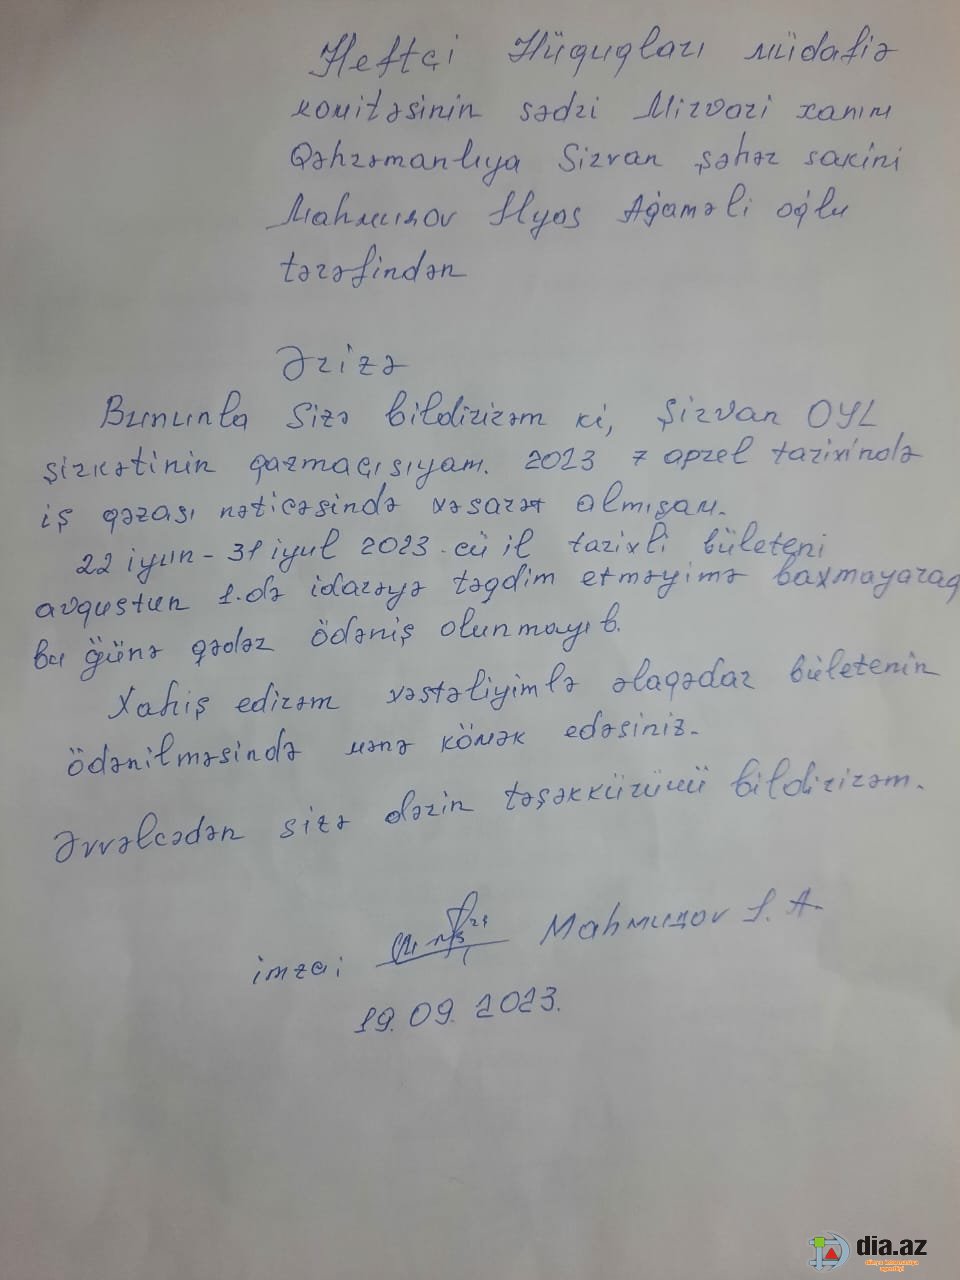 Neftçi Hüquqları müdafiə
komitəsinin sədri Mirvari xanım
Qəhrəmanlıya Şirvan şəhər sakini
Mahmudov İlyas Ağaməli oğlu
tərəfindən
Ərizə
Bununla Sizə bildirirəm ki, Şirvan OYL
şirkətinin qazmaçısıyam. 2023 7 aprel tarixində
iş qəzası nəticəsində xəsarət almışam.
22 iyun - 31 iyul 2023-cü il tarixli bületeni
avqustun 1.də idarəyə təqdim etməyimə baxmayaraq
bu günə qədər ödəniş olunmayıb.
Xahiş edirəm xəstəliyimlə əlaqədar bületenin
ödənilməsində mənə kömək edəsiniz.
Əvvəlcədən sizə dərin təşəkkürümü bildirirəm.
imza: Mahmudov I. A.
19.09.2023.
dia.az
dünya informasiya
agentliyi